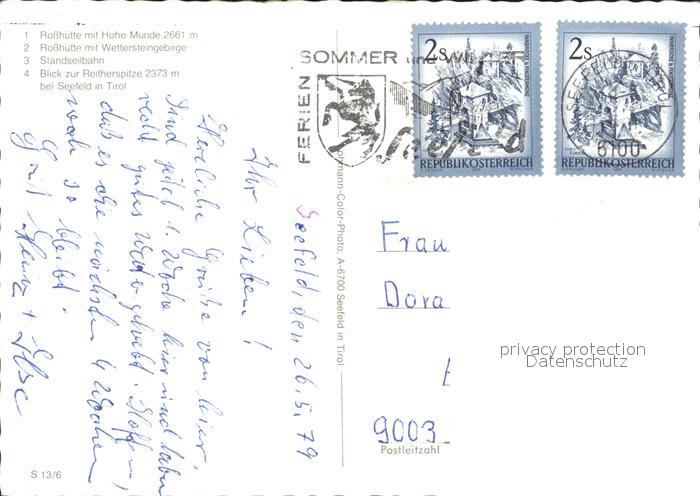 1 Roßhütte mit Hohe Munde 2661 m
2 Roßhütte mit Wettersteingebirge
3 Standseilbahn
4 Blick zur Reitherspitze 2373 m
bei Seefeld in Tirol
Seefeld, den 26.5.79
Ihr Lieben!
Herzliche Grüße von hier.
Sind jetzt 1. Woche hier und haben
recht gutes Wetter gehabt. Hoffen,
daß es die nächsten 4 Wochen
noch so bleibt.
Gruß
Heinz + Ilse
S 13/6
SOMMER und WINTER
FERIEN
Seefeld
2s
REPUBLIK ÖSTERREICH
2s
REPUBLIK ÖSTERREICH
SEEFELD IN TIROL
6100
-Color-Photo, A-6700 Seefeld in Tirol
Frau
Dora
9003
Postleitzahl
privacy protection
Datenschutz